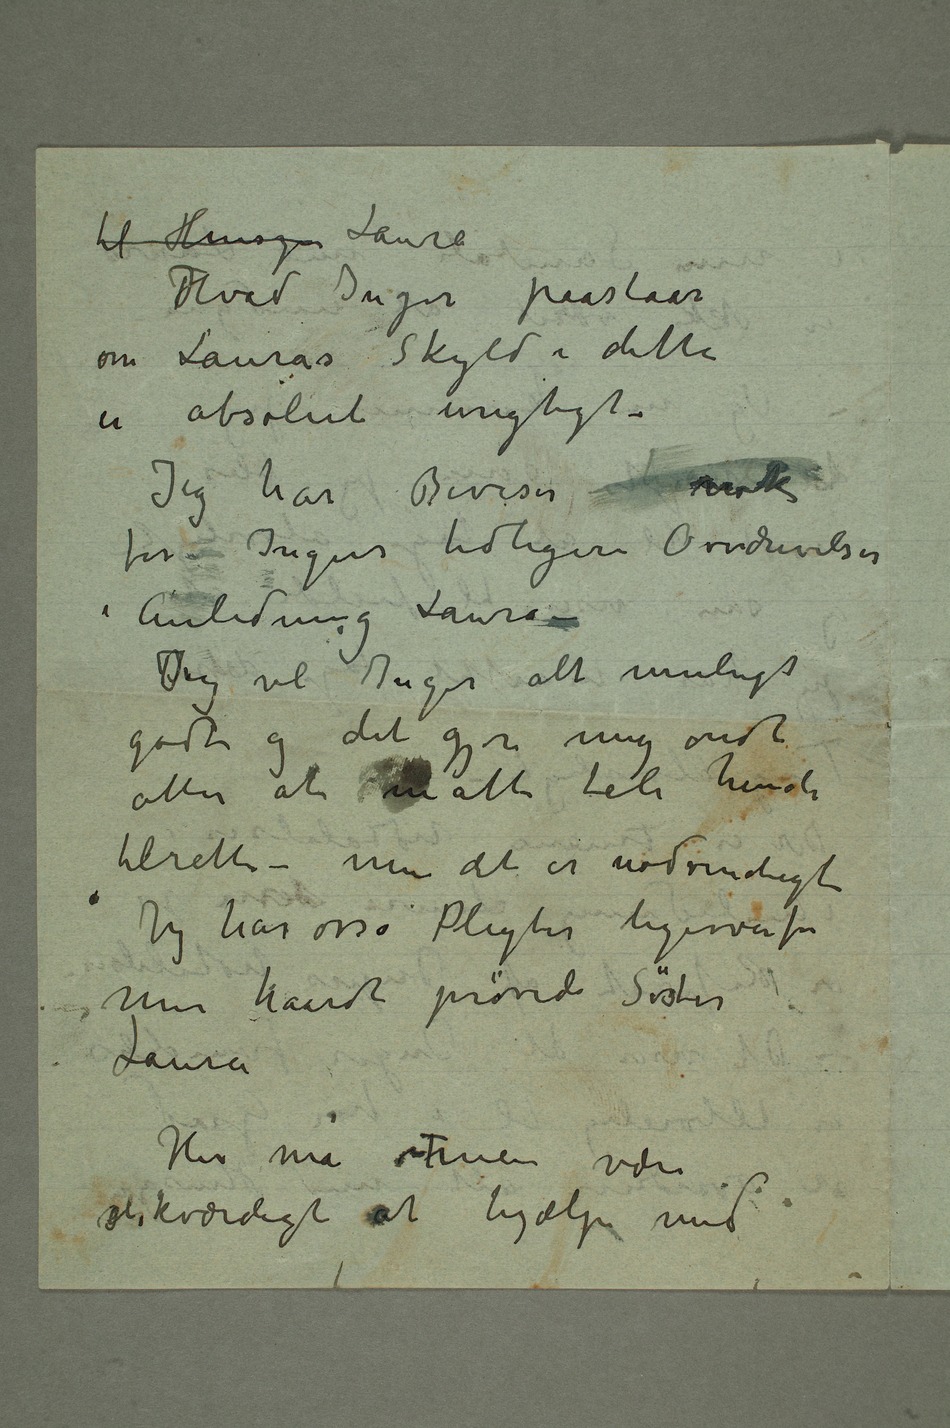 til Hensyn Laura
Hvad Inger paastaar
om Lauras Skyld i dette
er absolut urigtigt –
Jeg har Beviser nok
for Ingers tidligere Overdrivelser
i Anledning Laura –
Jeg vil Inger alt muligt
godt og det gjør mig ondt
atter at måtte tale hende
tilrette – men det er nødvendigt
Jeg har også Pligter ligeoverfor
min haardt prøvede Söster
Laura
Her må være
elskværdigt at hjælpe med